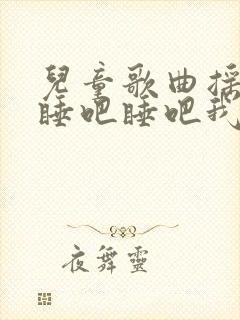 兒童歌曲搖
睡吧睡吧我
夜舞靈